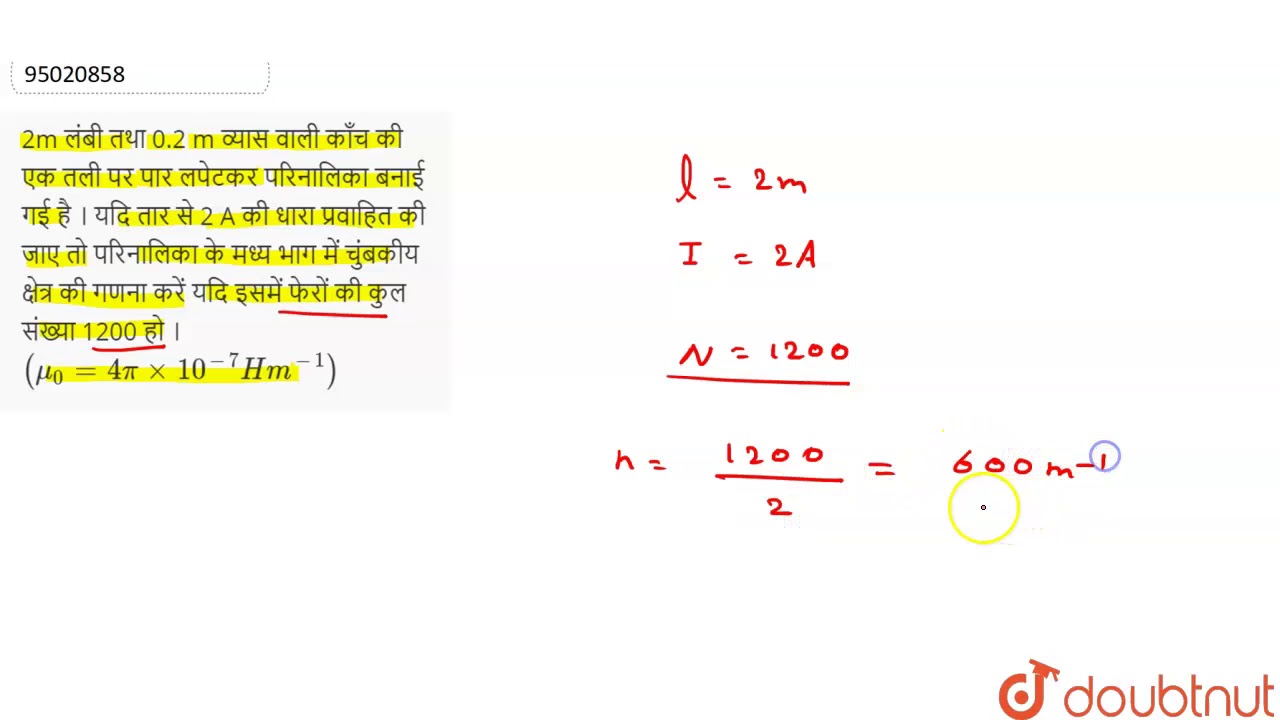 95020858
2m लंबी तथा 0.2 m व्यास वाली काँच की
एक तली पर पार लपेटकर परिनालिका बनाई
गई है । यदि तार से 2 A की धारा प्रवाहित की
जाए तो परिनालिका के मध्य भाग में चुंबकीय
क्षेत्र की गणना करें यदि इसमें फेरों की कुल
संख्या 1200 हो ।
(μ₀ = 4π × 10⁻⁷Hm⁻¹)
l = 2m
I = 2A
N = 1200
n = 1200/2 = 600 m⁻¹
doubtnut